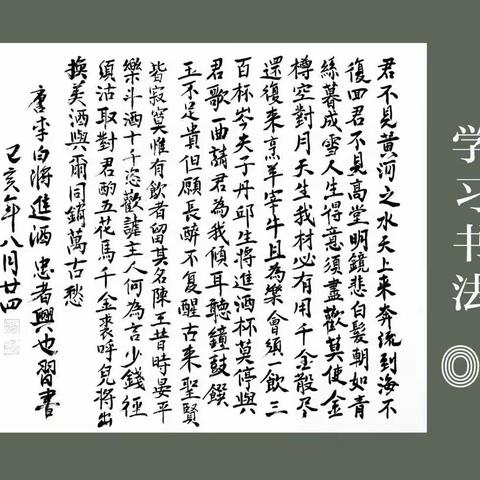 君不見黃河之水天上来奔流到海不
復回君不見高堂明鏡悲白髮朝如青
絲暮成雪人生得意須盡歡莫使金
樽空對月天生我材必有用千金散尽
還復来烹羊宰牛且為樂會須一飲三
百杯岑夫子丹邱生將進酒杯莫停與
君歌一曲請君為我傾耳聽鐘鼓饌
玉不足貴但願長醉不復醒古来聖賢
皆寂寞惟有飲者留其名陳王昔時宴平
樂斗酒十千恣歡謔主人何為言少錢徑
須沽取對君酌五花馬千金裘呼兒將出
換美酒與爾同銷萬古愁
唐李白將進酒 忠者興也習書
己亥年八月廿四
学习书法